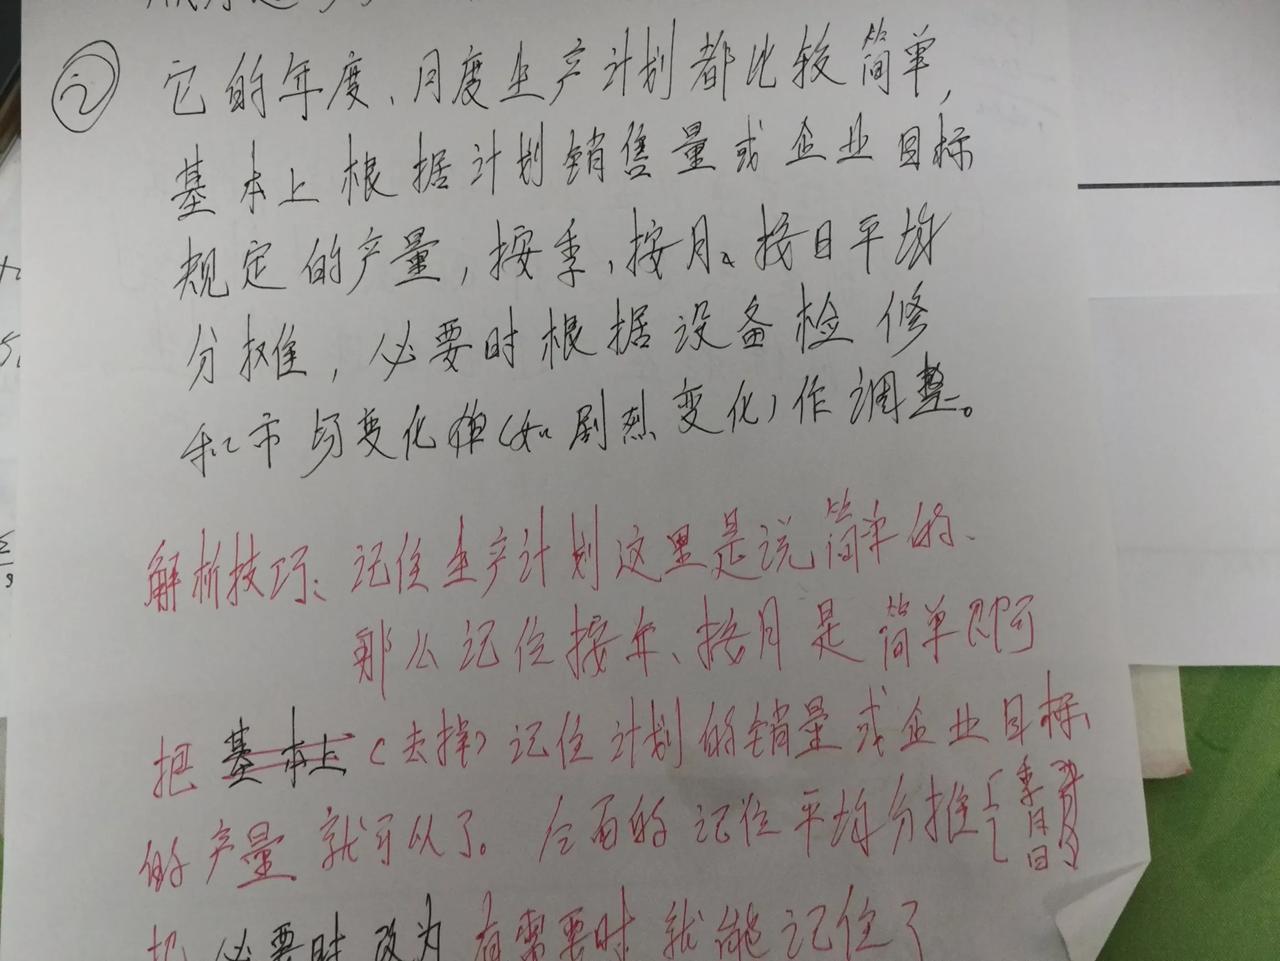 ② 它的年度、月度生产计划都比较简单,
基本上根据计划销售量或企业目标
规定的产量,按季,按月、按日平均
分摊,必要时根据设备检修
和市场变化(如剧烈变化)作调整。
解析技巧:记住生产计划这里是说简单的、
那么记住按年、按月是简单即可
把基本上(去掉)记住计划的销量或企业目标
的产量就可以了。后面的记住平均分摊[季月日
把必要时改为有需要时就能记住了